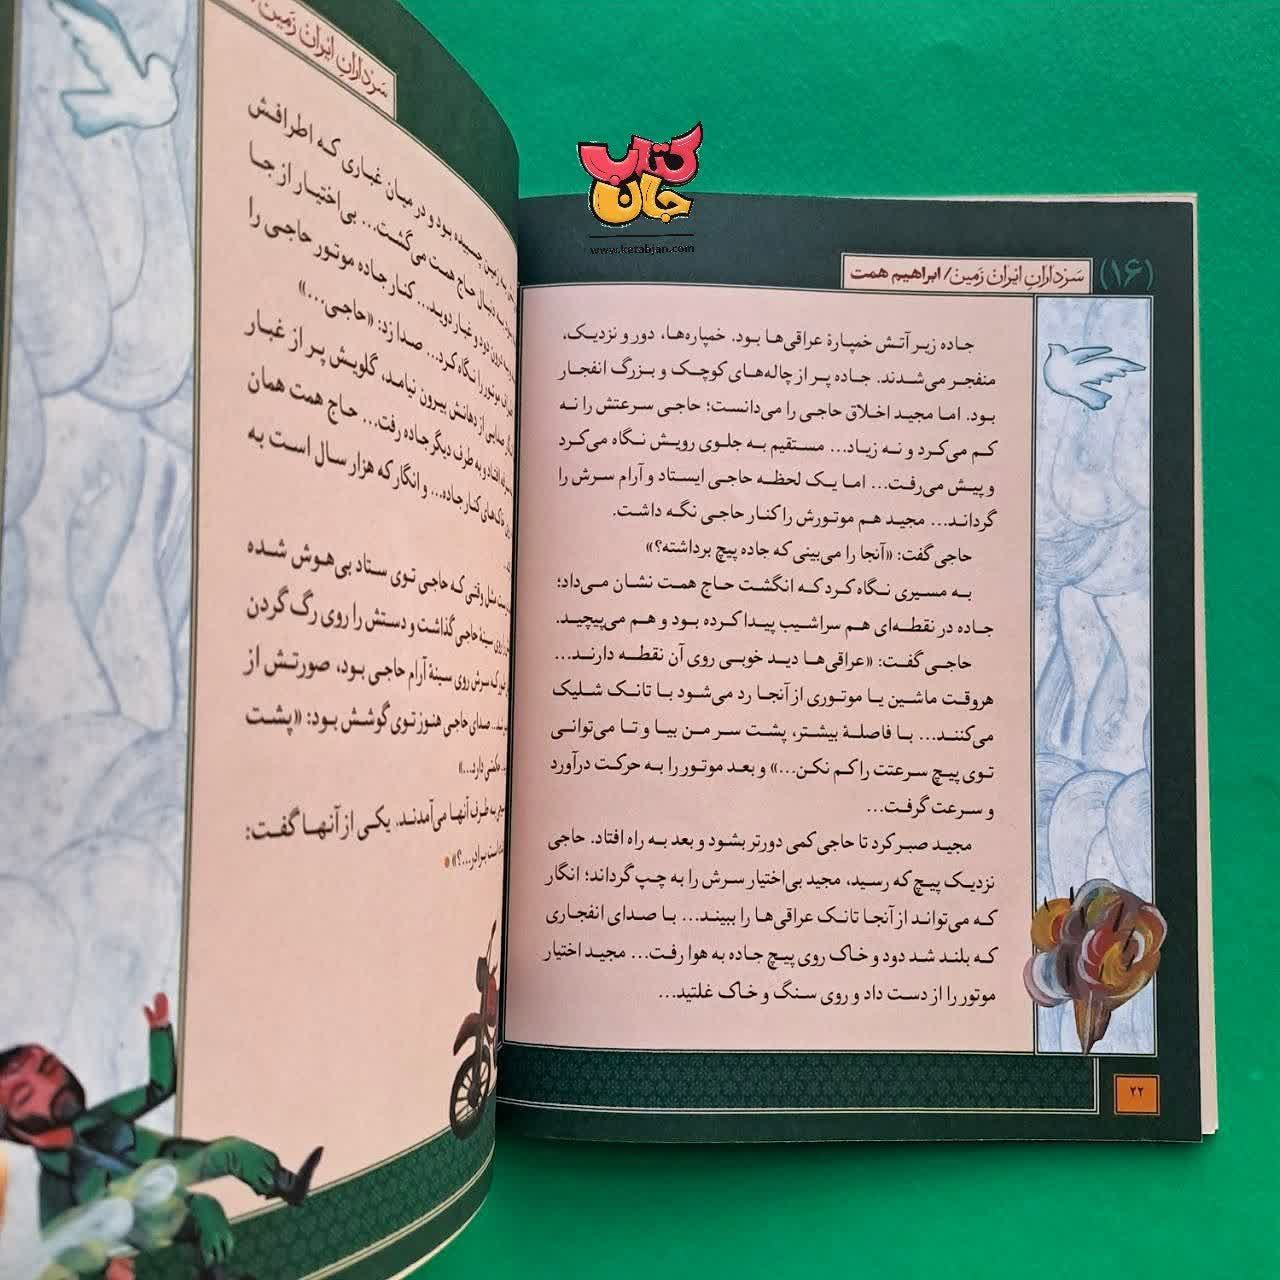 کتاب
جان
www.ketabjan.com
(۱۶)
سَرْدارانِ ایران زَمین/ ابراهیم همت
جاده زیر آتش خمپارهٔ عراقی‌ها بود. خمپاره‌ها، دور و نزدیک،
منفجر می‌شدند. جاده پر از چاله‌های کوچک و بزرگ انفجار
بود. اما مجید اخلاق حاجی را می‌دانست؛ حاجی سرعتش را نه
کم می‌کرد و نه زیاد... مستقیم به جلوی رویش نگاه می‌کرد
و پیش می‌رفت... اما یک لحظه حاجی ایستاد و آرام سرش را
گرداند... مجید هم موتورش را کنار حاجی نگه داشت.
حاجی گفت: «آنجا را می‌بینی که جاده پیچ برداشته؟»
به مسیری نگاه کرد که انگشت حاج همت نشان می‌داد؛
جاده در نقطه‌ای هم سراشیب پیدا کرده بود و هم می‌پیچید.
حاجی گفت: «عراقی‌ها دید خوبی روی آن نقطه دارند...
هروقت ماشین یا موتوری از آنجا رد می‌شود با تانک شلیک
می‌کنند... با فاصلهٔ بیشتر، پشت سر من بیا و تا می‌توانی
توی پیچ سرعتت را کم نکن...» و بعد موتور را به حرکت درآورد
و سرعت گرفت...
مجید صبر کرد تا حاجی کمی دورتر بشود و بعد به راه افتاد. حاجی
نزدیک پیچ که رسید، مجید بی‌اختیار سرش را به چپ گرداند؛ انگار
که می‌تواند از آنجا تانک عراقی‌ها را ببیند... با صدای انفجاری
که بلند شد دود و خاک روی پیچ جاده به هوا رفت... مجید اختیار
موتور را از دست داد و روی سنگ و خاک غلتید...
۲۲
سَرْدارانِ ایران زَمین
به زمین چسبیده بود و در میان غباری که اطرافش
به دنبال حاج همت می‌گشت... بی‌اختیار از جا
درون دود و غبار دوید... کنار جاده موتور حاجی را
موتور را نگاه کرد... صدا زد: «حاجی...»
صدایی از دهانش بیرون نیامد، گلویش پر از غبار
افتاد و به طرف دیگر جاده رفت... حاج همت همان
خاک‌های کنار جاده... و انگار که هزار سال است به
مثل وقتی که حاجی توی ستاد بی‌هوش شده
روی سینهٔ حاجی گذاشت و دستش را روی رگ گردن
که سرش روی سینهٔ آرام حاجی بود، صورتش از
شد. صدای حاجی هنوز توی گوشش بود: «پشت
دارد...»
به طرف آنها می‌آمدند. یکی از آنها گفت:
است برادر...؟»